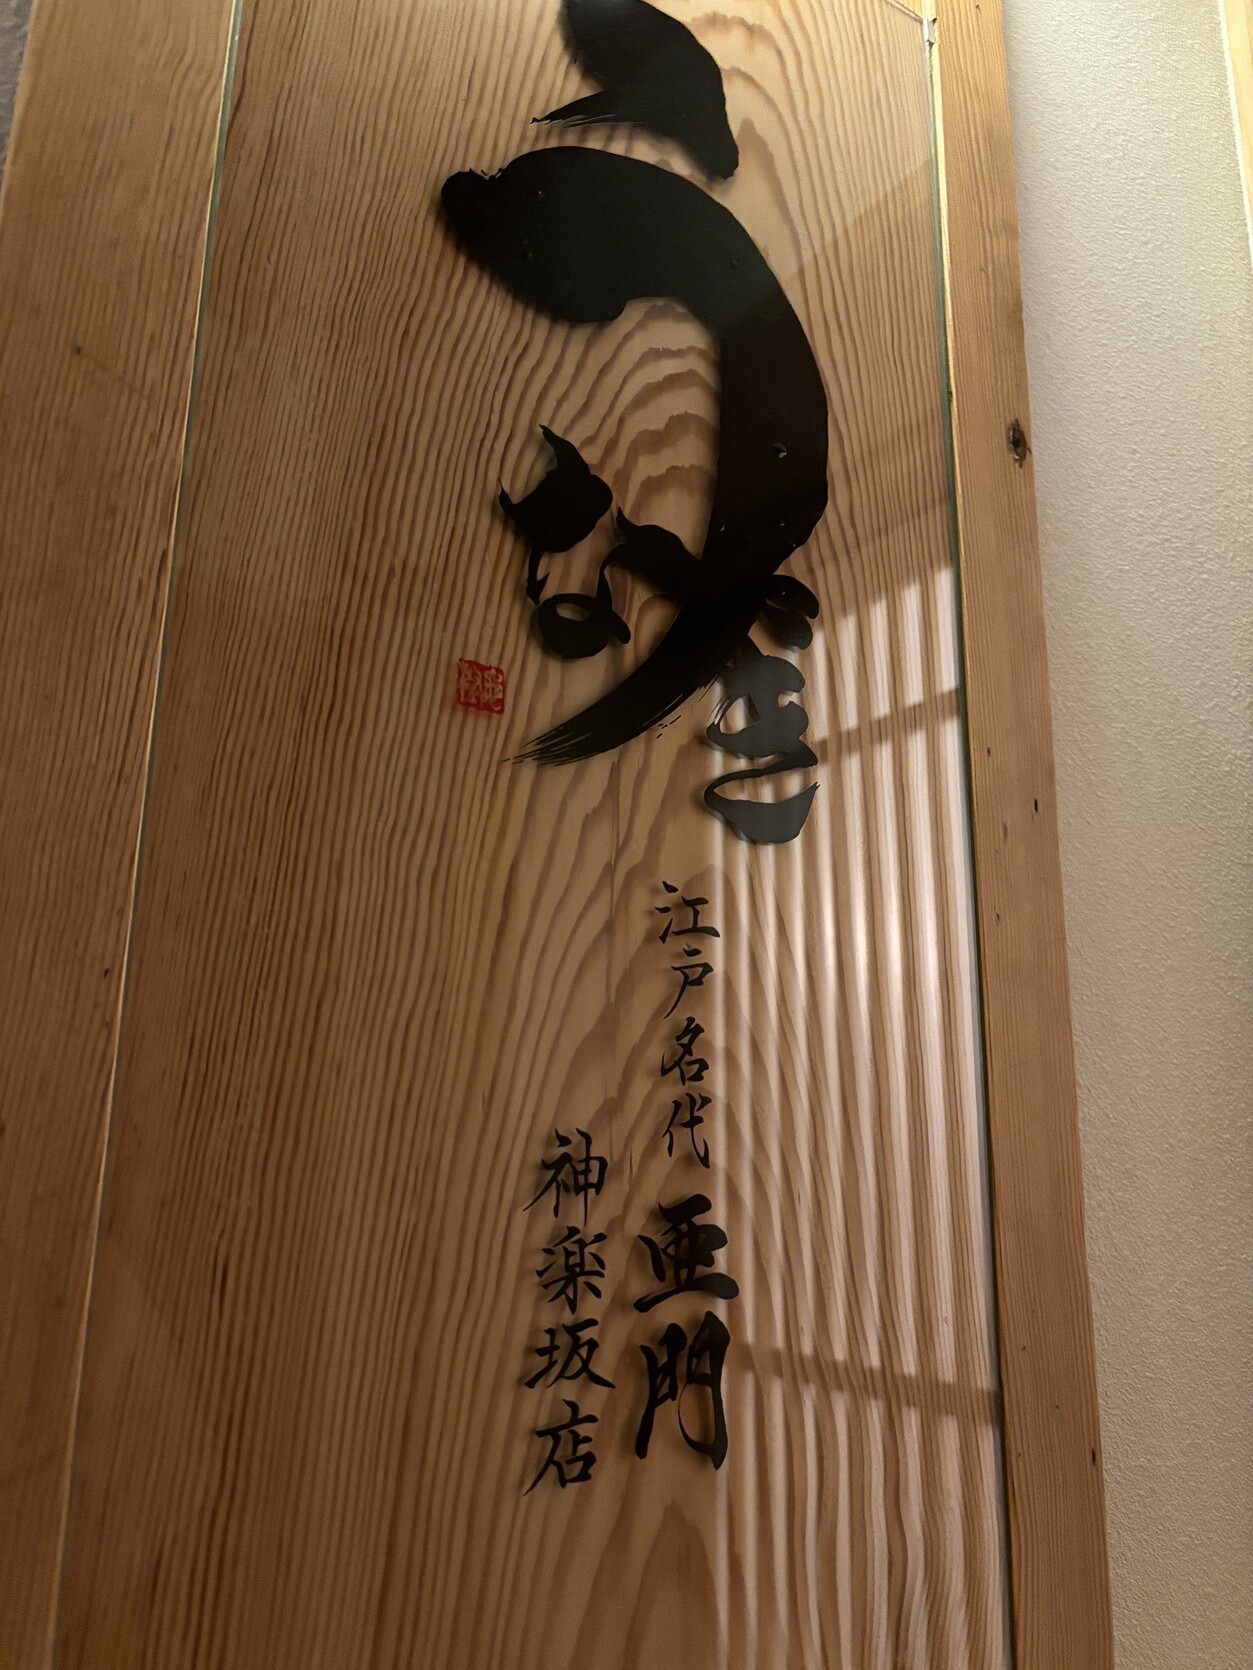 うなぎ
江戸名代 亜門
神楽坂店